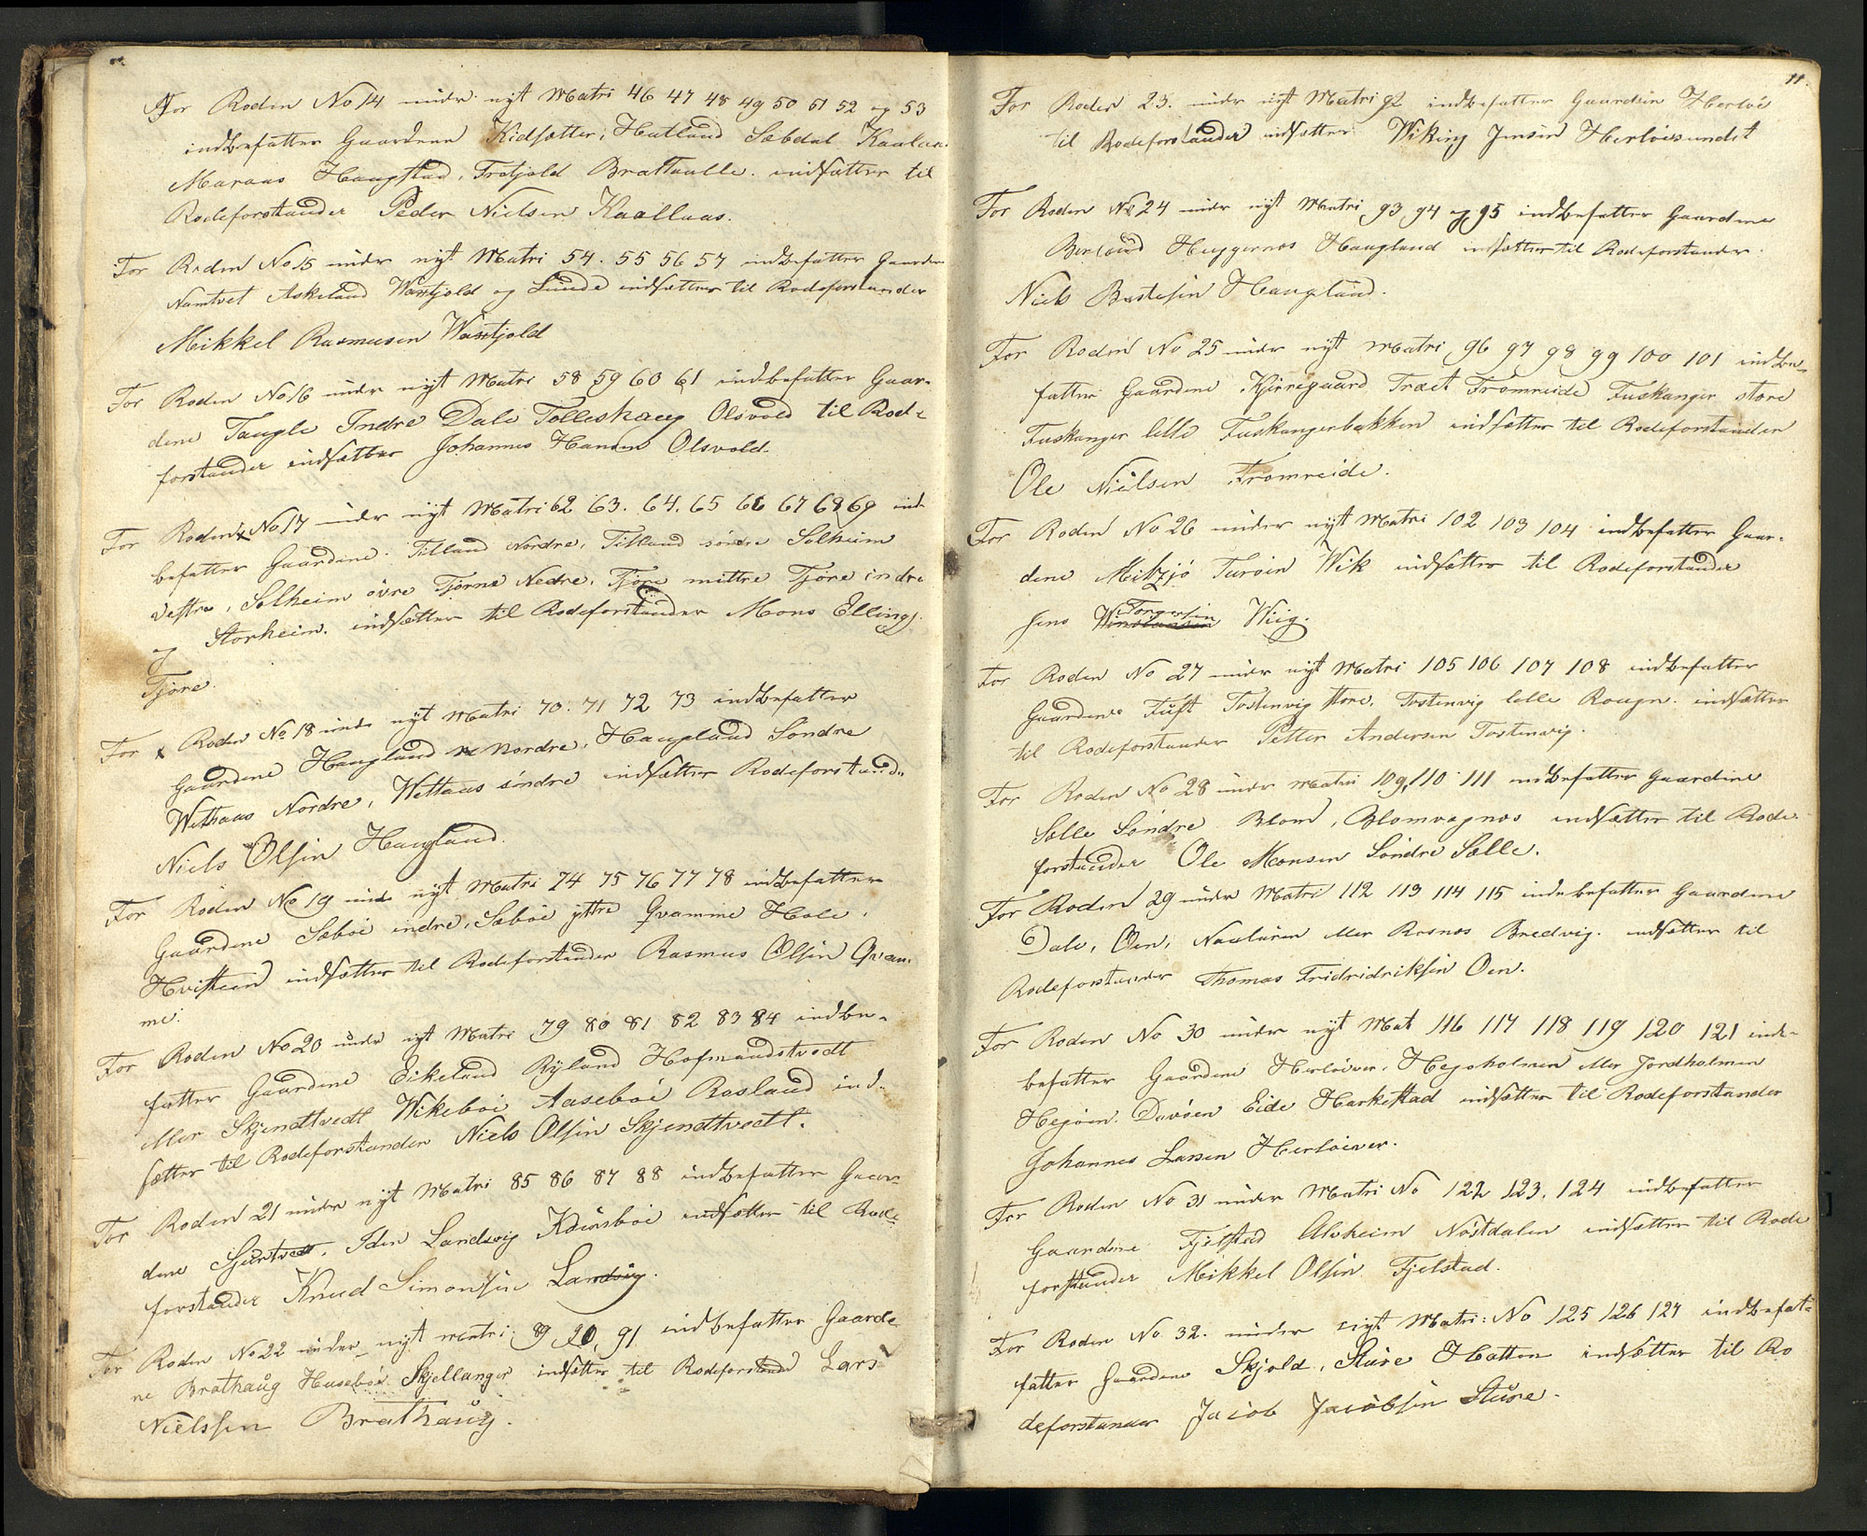 For Roden No 14 under nyt Matri 46 47 48 49 50 51 52 og 53
indbefatter Gaardene Kidsætter, Hatland Sæbdal Kaalaas
Maraas Haugstad, Trotjold Brattaulle. indsætter til
Rodeforstander Peder Nielsen Kaallaas.
For Roden No 15 under nyt Matri 54. 55 56 57 indbefatter Gaarden
Namtvet Askeland Wæstjold og Lunde indsætter til Rodeforstander
Mikkel Rasmusen Wæstjold
For Roden No 16 under nyt Matri 58 59 60 61 indbefatter Gaar-
dene Taugle Indre Dale Tolleshaug Olsvold til Rode-
forstander indsætter Johannes Hansen Olsvold.
For Roden No 17 under nyt Matri 62 63. 64. 65 66 67 68 69 ind
befatter Gaardene. Tilland Nordre, Tilland söndre Solheim
Vestre, Solheim övre Tjörne Nedre, Tjöre mittre Tjöre indre
og Storheim. indsetter til Rodeforstander Mons Ellings.
Tjöre.
For x Roden No 18 under nyt Matri 70. 71 72 73 indbefatter
Gaardene Haugland Nordre, Haugland Söndre
Withaas Nordre, Wettaas söndre indsætter Rodeforstander
Niels Olsen Haugland.
For Roden No 19 under nyt Matri 74 75 76 77 78 indbefatter
Gaardene Sæböe indre, Sæböe yttre Qvamme Hole,
Hvisteen indsætter til Rodeforstander Rasmus Olsen Qvam-
me.
For Roden No 20 under nyt Matri 79 80 81 82 83 84 indbe-
fatter Gaardene Eikeland Ryland Hofmandstvedt
eller Skjendtvedt Wikeböe Aaseböe Rosland ind-
sætter til Rodeforstander Niels Olsen Skjendtvedt.
For Roden 21 under nyt Matri 85 86 87 88 indbefatter Gaar-
dene Sjurtvedt, Iden Landsvig indsætter til Rode-
forstander Knud Simonsen Landsvig.
For Roden No 22 under nyt Matri 89 90, 91 indbefatter Gaarde
ne Brathaug Huseböe Skjellanger indsætter til Rodeforstander Lars
Nielssen Brathaug.
11.
For Roden 23. under nyt Matri 92 indbefatter Gaarden Herlöe
til Rodeforstander indsætter Wiking Jensen Herlöesundet
For Roden No 24 under nyt Matri 93 94 og 95 indbefatter Gaardene
Berland Huggernes Haugland indsætter til Rodeforstander.
Niels Haugland.
For Roden No 25 under nyt Matri 96 97 98 99 100 101 indbe-
fatter Gaardene Kjirregaard Træet Fromreide Fuskanger store
Fuskanger lille Fuskangerbakken indsætter til Rodeforstander
Ole Nielsen Fromreide.
For Roden No 26 under nyt Matri 102 103 104 indbefatter Gaar-
dene Mitzjö Turöen Wik indsætter til Rodeforstander
Jens Torgersen Wiig.
For Roden No 27 under nyt Matri 105 106 107 108 indbefatter
Gaardene Tuft Tostenvig store, Tostenvig lille Rougn. indsætter
til Rodeforstander Petter Andersen Tostenvig.
For Roden No 28 under Matri 109, 110 111 indbefatter Gaardene
Sælle Söndre Blom, Blomvagnes indsætter til Rode-
forstander Ole Monsen Söndre Sælle.
For Roden 29 under Matri 112 113 114 115 indebefatter Gaardene
Dale, Oen, Nautæren eller Rosnes Bredvig. indsætter til
Rodeforstander Thomas Fridridriksen Oen.
For Roden No 30 under nyt Mat 116 117 118 119 120 121 inde-
befatter Gaardene Herlöever, Hegoholmen eller Jordholmen
Hegöen. Davöen Eide Harkestad indsætter til Rodeforstander
Johannes Larsen Herlöever.
For Roden No 31 under Matri No 122 123. 124 indbefatter
Gaardene Fjelstad Alvheim Nöstdalen indsætter til Rode
forstander Mikkel Olsen Fjelstad.
For Roden No 32. under nyt Matri: No 125 126 127 indbefat-
fatter Gaardene Skjold, Sture Hatten indsætter til Ro
deforstander Jacob Jacobsen Sture.